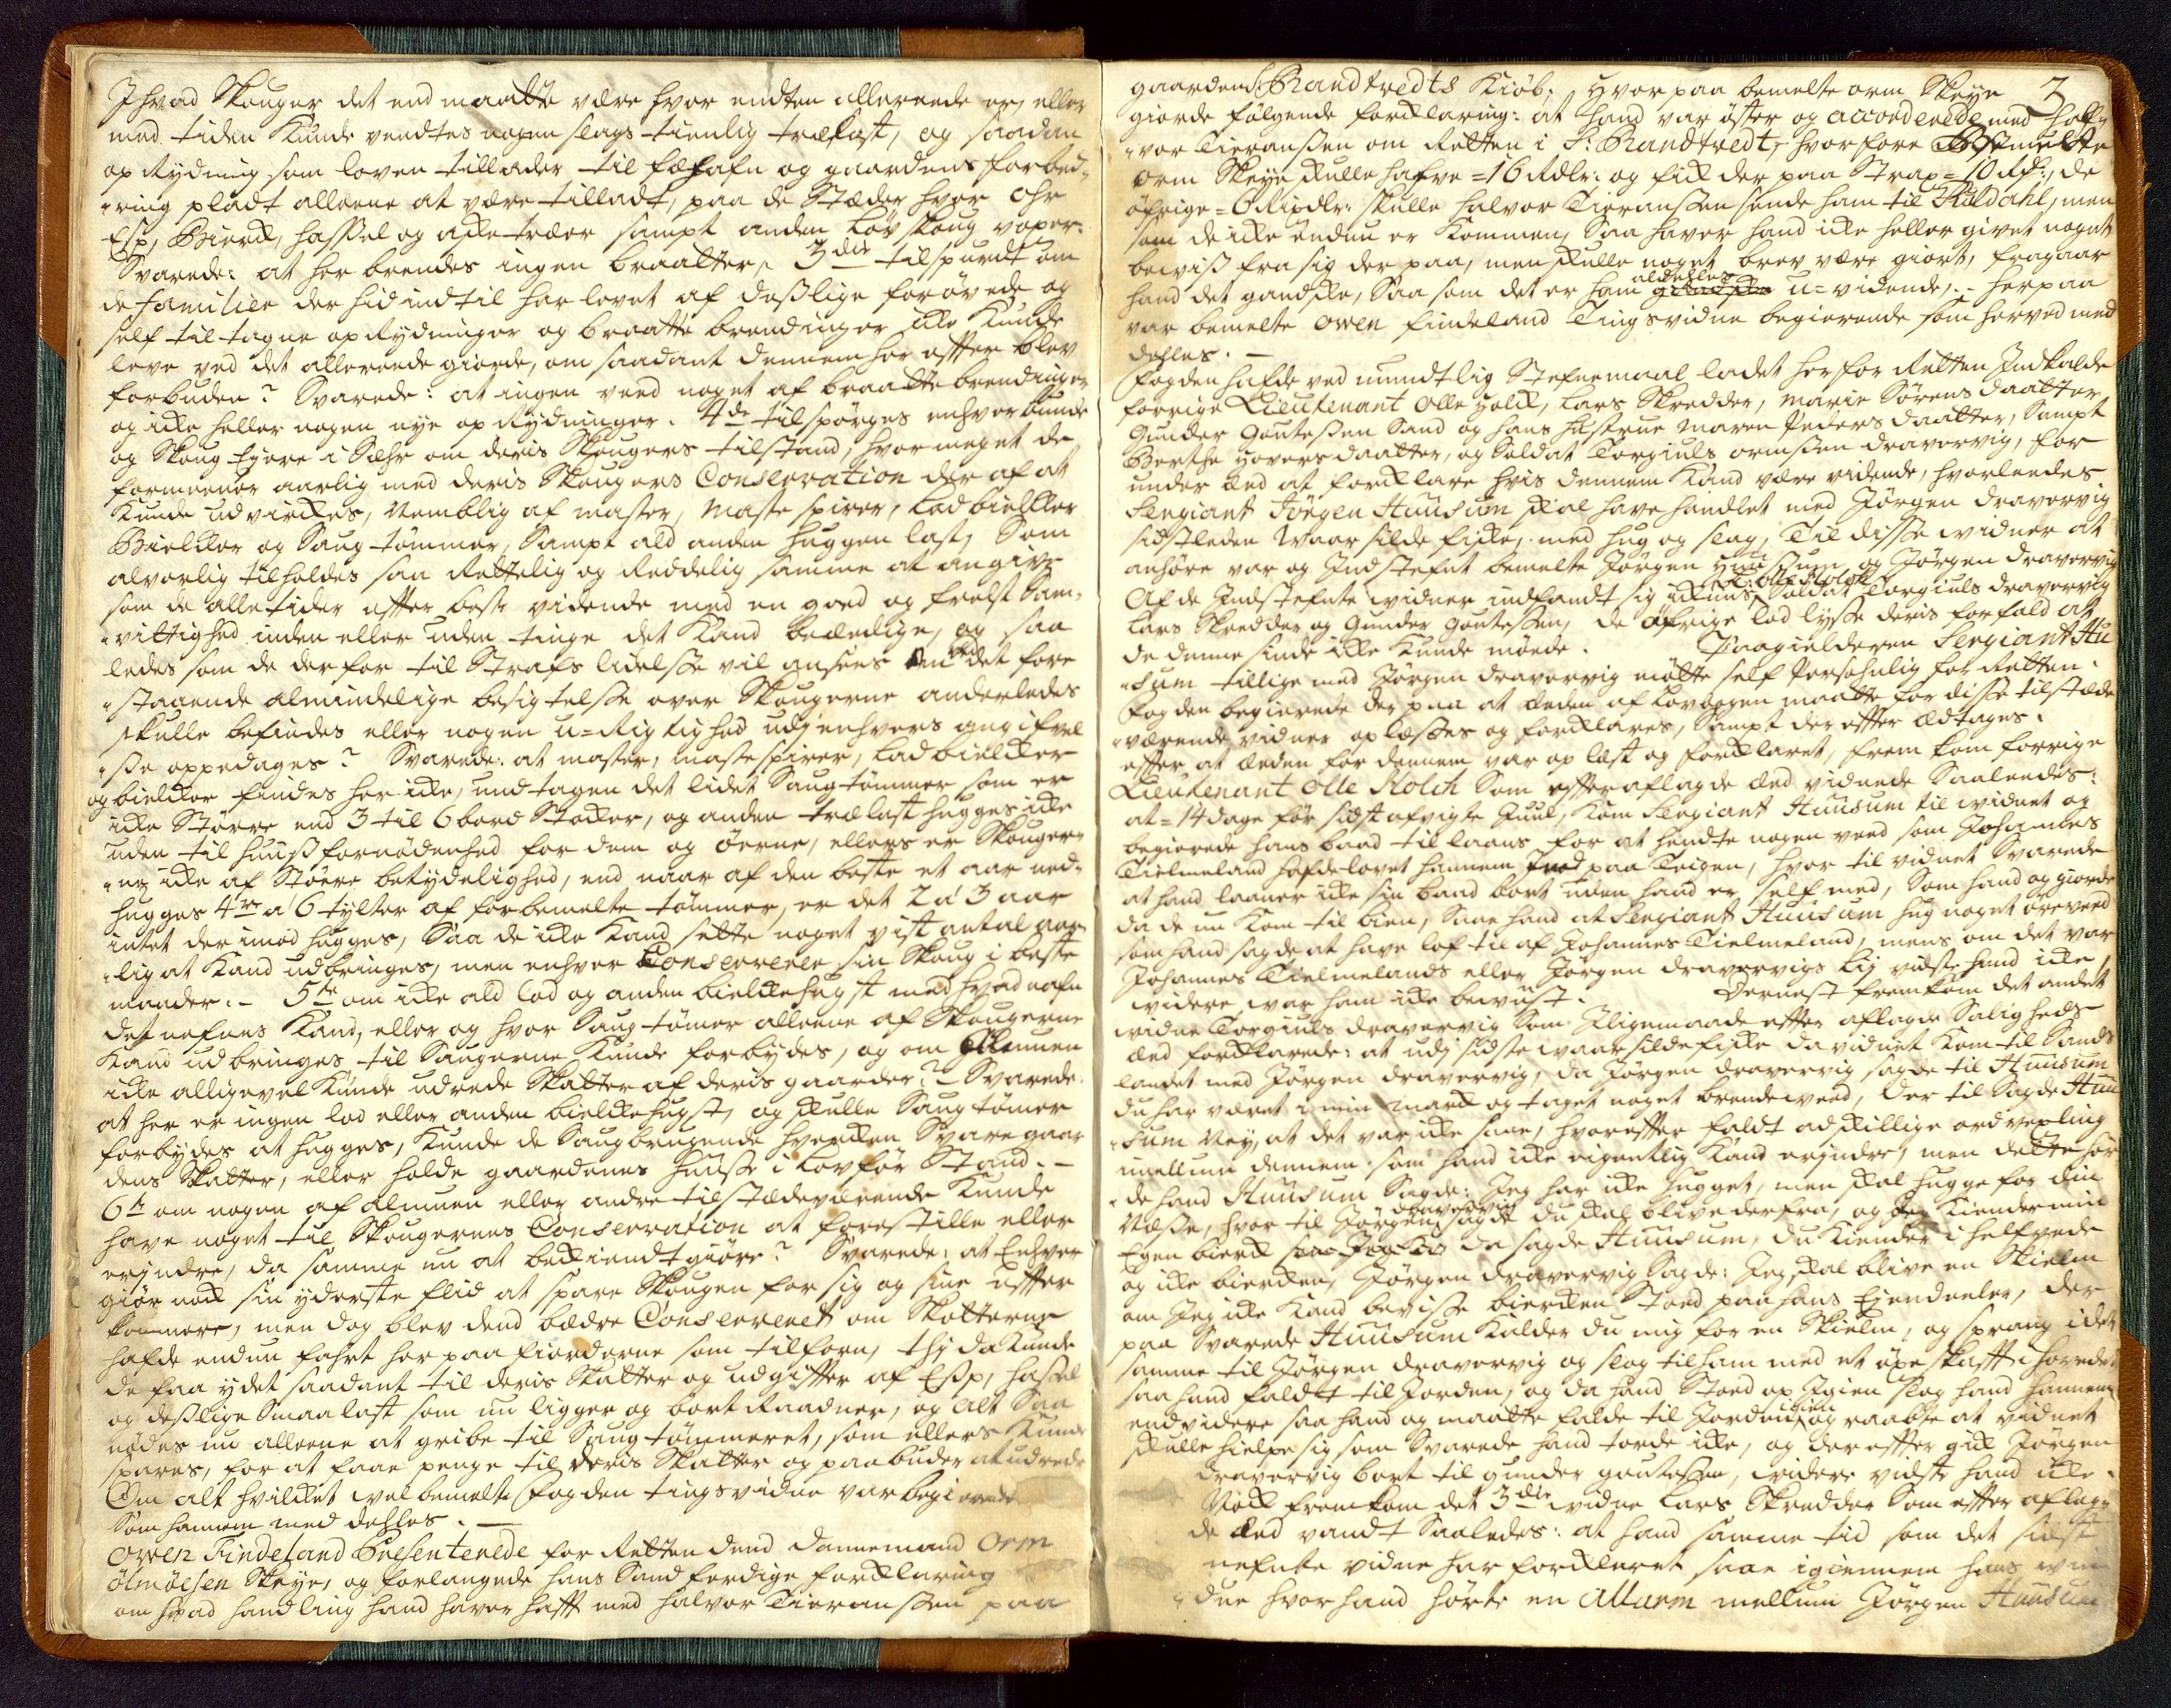 Ihvad Skouger det end maatte være hvor endten allereede er, eller
med tiden Kunde ventes nogen slags tienlig trælast, og saadan
op Rydning som loven tillader til fæhafn og gaardens forbed-
"ring pladt alleene at være tilladt, paa de Stæder hvor Ohr
Esp, Birck, hassel og aske træer sampt anden løv skoug voxer:
Svarede: at her brendes ingen braatter, 3die tilspurdt om
de familier der hid indtil har levet af deslige forøvede og
self til tagne op Rydninger og braatte brendinger icke Kunde
leve ved det allereede giorde, om saadant dennem her effter blev
forbuden? Svarede: at ingen veed noget af braatte brendinger
og icke heller nogen nye op Rydninger. 4de tilspørges enhver bunde
og Skoug Eyere i Sæhr om deris Skougers tilstand, hvor meget de
formeener aarlig med deris Skougers Conservation der af at
Kunde udvirckes, Nemblig af master, Maste spirer, Lad bielcker
Bielcker og Saug tømmer, Sampt ald anden huggen last, Som
alvorlig tilholdes saa Rettelig og Reddelig samme at angive
som de alle tider effter beste vidende med en goed og frelst Sam-
"vittighed inden eller uden tinge det Kand beædige, og saa
ledes som de derfor til Strafs lidelsse vil ansees om ved det fore
"staaende almindelige besigtelsse over Skougerne anderledes
skulle befindes eller nogen u=Rigtighed udj enhvers angifvel
"sse oppedages? Svarede: at master, mastespirer, ladbielcker
og bielcker findes her icke, undtagen det lidet Saugtømmer som er
icke Større end 3 til 6 bord Stocker, og anden trælast hugges icke
uden til huus fornødenhed for dem og øerne, ellers er Skouger-
"ne icke af Større betydelighed, end naar af den beste et aar ned-
hugges 4re a 6 tylter af forbemelte tømmer, er det 2 a 3 aar
intet der imod hugges, Saa de icke Kand sette noget vist antal aar-
"lig at Kand udbringes, men enhver Conserverer sin Skoug i beste
maader. - 5te om icke ald lad og anden bielckehugst med hvad nafn
det nefnes Kand, eller og hvor Saug tømer alleene af Skougerne
Kand udbringes til Saugerne Kunde forbydes, og om Almuen
icke alligevel Kunde udrede Skatter af deris gaarder? Svarede:
at her er ingen lad eller anden bielckehugst, og skulle Saugtømer
forbydes at hugges, Kunde de Saugbrugende hvercken Svare gaar
dens Skatter, eller holde gaardenes huusse i Lovfør Stand. -
6te om nogen af Almuen eller andre tilstædeværende Kunde
have noget til Skougernes Conservation at forestille eller
erindre, da samme nu at beckiendtgiøre? Svarede: at Enhver
giør nock sin yderste flid at spare Skougen for sig og sine effter
kommere, men dog blev dend bædre Conserveret om Skotterne
hafde endnu fahrt her paa fiorderne som tilforn, thj da Kunde
de faa ydet saadant til deris Skatter og udgiffter af Esp, hassel
og deslige Smaalast som nu ligger og bort Raadner, og alt Saa
nødes nu alleene at gribe til Saugtømmeret, som ellers Kunde
spares, for at faae penge til deris Skatter og paabuder at udrede
Om alt hvilcket velbemelte fogden tingsvidne var begierende
Som hannem med dehles. -
Owen Findeland Presenterede for Retten dend Dannemand Orm
Olmøesen Skeye, og forlangede hans Sandferdige forcklaring
om hvad handling hand haver hafft med halvor Tieranssen paa
3
gaarden S: Brandtvedts Kiøb; Hvor paa bemelte orm Skeye
giorde følgende forcklaring: at hand var øster og accorderede med hall-
"vor Tieranssen om Retten i S: Brandtvedt, hvorfore Bemelte
orm Skeye skulle hafve = 16 Rdlr: og fick der paa Strax = 10 Rd:, de
øfrige = 6 Rixdlr: skulle halvor Tieranssen sende ham til Kildahl, men
som de icke endnu er Kommen, Saa haver hand icke heller givet noget
beviss fra sig der paa, men skulle noget brev være giort, fragaar
hand det gandske, Saa som det er ham aldeelles u=vidende. - Herpaa
var bemelte owen findeland Tingsvidne begierende som herved med
dehles. -
fogden hafde ved mundtlig Stefnemaal ladet her for Retten Indkalde
forrige Lieutenant olle Holck, Lars Skredder, Marie Sørens daatter,
Gunder Goutessen Sand og hans hustrue Maren Peders daatter, Sampt
Berthe Hovers daatter, og Soldat Torgiuls ormssen dravervig, for
under Æd at forcklare hvis dennem Kand være vidende, hvorleedes
Sergiant Jørgen Huusum skal have handlet med Jørgen dravervig
sidstleden Waar silde ficke, med hug og slag, Til disse widner at
anhøre var og Indstefnt bemelte Jørgen Huusum og Jørgen dravervig
Af de Indstefnte widner indfandt sig ickuns L: olle Holck Soldat Torgiuls dravervig
Lars Skredder og Gunder Goutessen, de øfrige lod lysse deris forfald at
de denne sinde icke Kunde møede. Paagielderen Sergiant Hu
"sum tillige med Jørgen dravervig møtte self Persohnlig for Retten.
fogden begierede der paa at Æden af Lovbogen maatte for disse tilstæde
"værende vidner oplæsses og forcklares, Sampt der effter ædtages.
effter at Æden for dennem var op læst og forcklaret, frem kom forrige
Lieutenant Olle Holck Som effter aflagde Æed vidnede Saaleedes:
at = 14 dage før sidst afvigte Juul, Kom Sergiant Huusum til widnet og
begierede hans baad til laans for at hendte nogen veed som Johannes
Tielmeland hafde lovet hannem paa Teigen, hvor til vidnet Svarede
at hand laaner icke sin baad bort uden hand er self med, Som hand og giorde
da de nu Kom til bien, Saae hand at Sergiant Huusum hug noget øreveed
som hand sagde at have lof til af Johannes Tielmeland, mens om det var
Johannes Tielmelands eller Jørgen dravervigs lig vidste hand icke,
widere war ham icke bevust. Dernest fremkom det andet
widne Torgiuls dravervig Som Iligemaade effter aflagde Saligheds
æed forcklarede: at udj sidste waar silde ficke da vidnet Kom til Sands
landet med Jørgen dravervig, da Jørgen dravervig sagde til Huusum
du har været i min Marck og taget noget brendeveed, Der til Sagde Huu
"sum Ney, at det var icke saae, hvoreffter faldt adskillige ordvexling
mellum dennem, som hand icke eigentlig Kand erindre, men dette hør
"de hand Huusum Sagde: Jeg har icke hugget, men skal hugge for din
Næsse, hvor til Jørgen dravervig sagde du skal blive derfra, og Jeg Kiender min
Egen bierck da sagde Huusum, du Kiender i helfvede
og icke biercken, Jørgen dravervig Sagde: Jeg skal blive en Skielm
om Jeg icke Kand bevisse biercken Stoed paa hans Eyendeeler, der
paa Svarede Huusum Kalder du mig for en Skielm, og sprang idet
samme til Jørgen dravervig og slog til ham med et øxe skafft i hovedet
saa hand faldt til Jorden, og da hand Stoed op Igien slog hand hannem
endvidere saa hand og maatte falde til Jorden igien og raabte at vidnet
skulle hielpe sig som Svarede hand torde icke, og der effter gick Jørgen
dravervig bort til gunder goutessen, widere vidste hand icke.
Nock fremkom det 3die widne Lars Skredder Som effter aflag-
de Æed vandt Saaledes: at hand samme tid som det sidst
nefnte vidne har forcklaret saae igiennem hans win
"due hvor hand hørte en Allarm mellum Jørgen Huusum